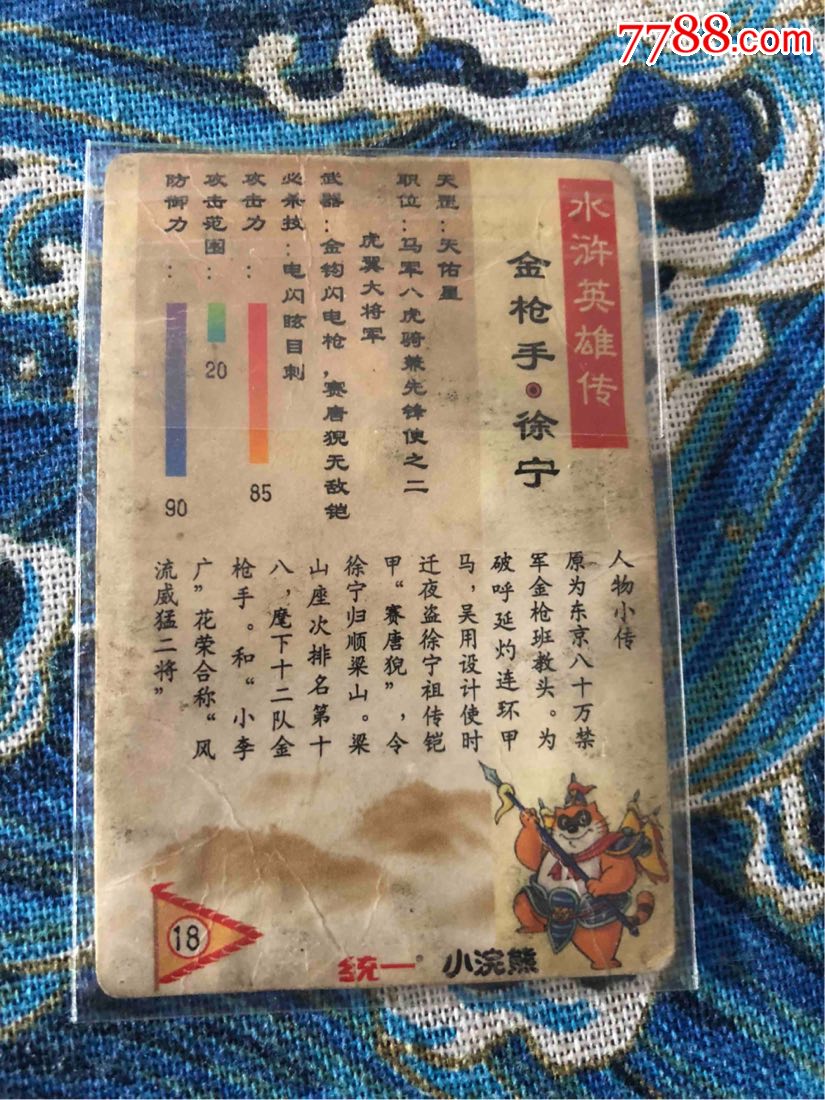 7788.com
水浒英雄传
金枪手·徐宁
天罡：天佑星
职位：马军八虎骑兼先锋使之二
虎翼大将军
武器：金钩闪电枪，赛唐猊无敌铠
必杀技：电闪眩目刺
攻击力：
85
攻击范围：
20
防御力：
90
人物小传
原为东京八十万禁
军金枪班教头。为
破呼延灼连环甲
马，吴用设计使时
迁夜盗徐宁祖传铠
甲“赛唐猊”，令
徐宁归顺梁山。梁
山座次排名第十
八，麾下十二队金
枪手。和“小李
广”花荣合称“风
流威猛二将”
18
统一 小浣熊